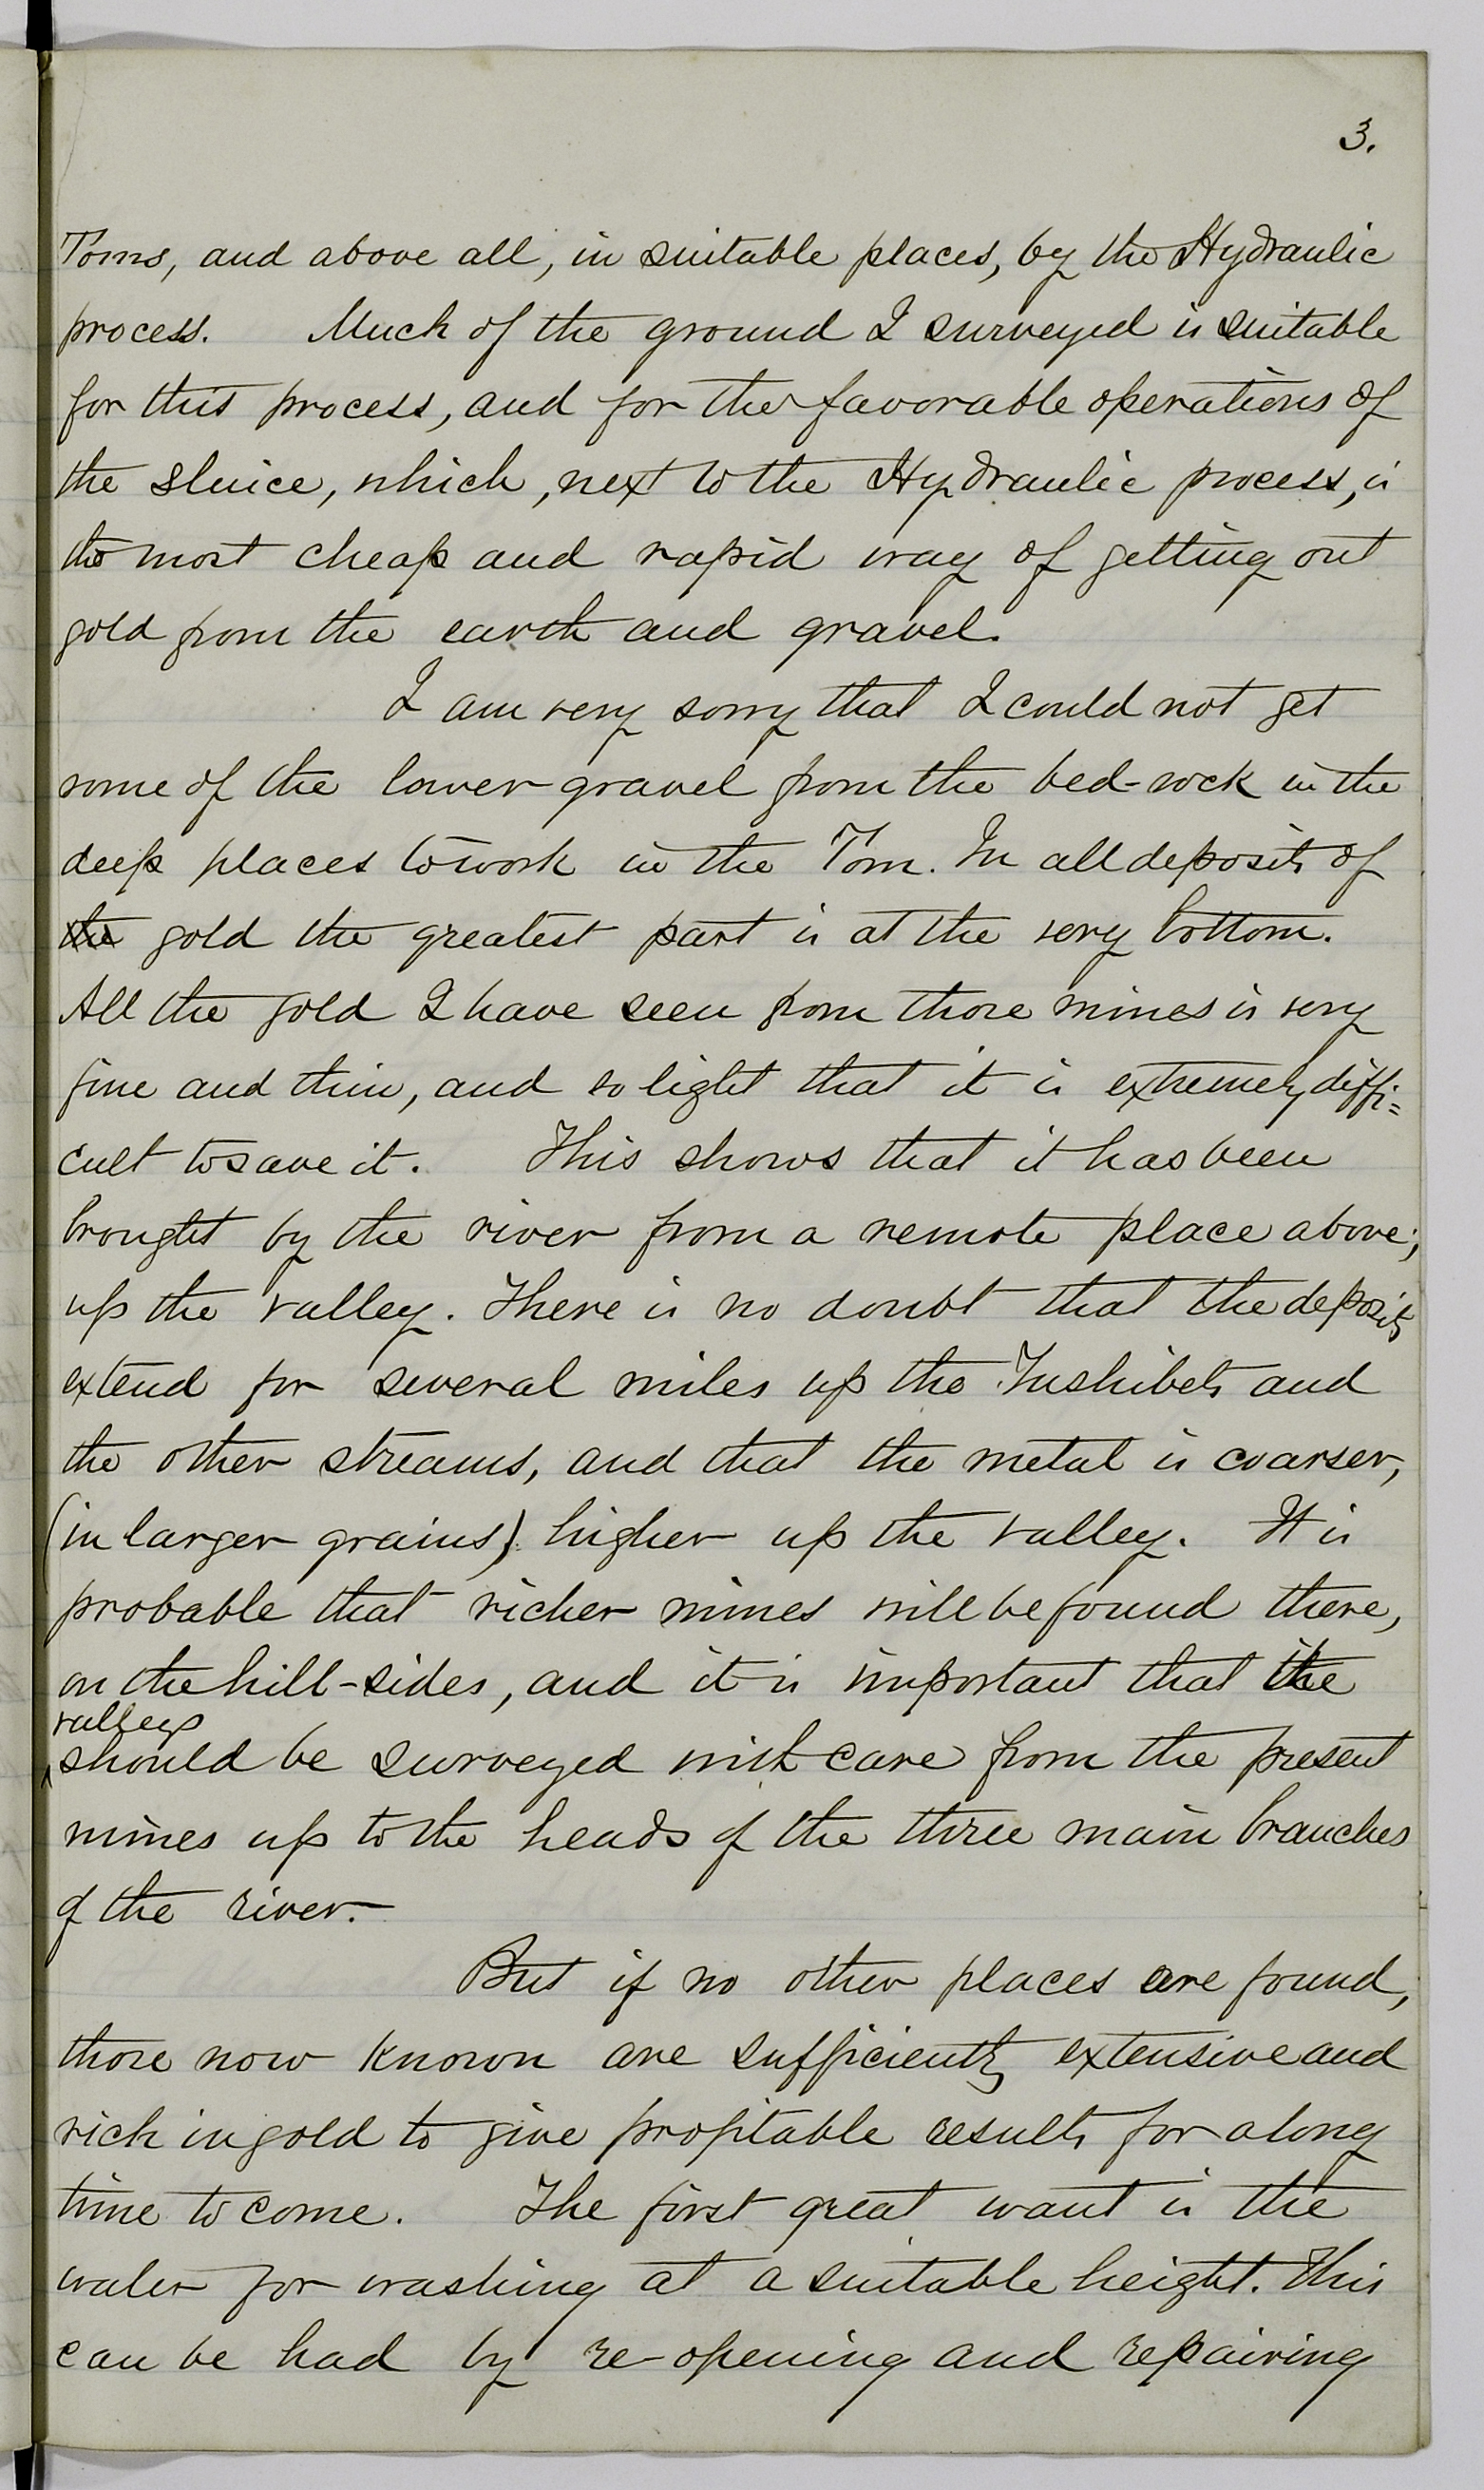 3.
Toms, and above all, in suitable places, by the Hydraulic
process. Much of the ground I surveyed is suitable
for this process, and for the favorable operations of
the sluice, which, next to the Hydraulic process, is
the most cheap and rapid way of getting out
gold from the earth and gravel.
I am very sorry that I could not get
some of the lower gravel from the bed-rock in the
deep places to work in the Tom. In all deposits of
the gold the greatest part is at the very bottom.
All the gold I have seen from those mines is very
fine and thin, and so light that it is extremely diffi=
cult to save it. This shows that it has been
brought by the river from a remote place above;
up the valley. There is no doubt that the deposits
extend for several miles up the Tushibets and
the other streams, and that the metal is coarser,
(in larger grains) higher up the valley. It is
probable that richer mines will be found there,
on the hill-sides, and it is important that the
valleys
should be surveyed with care from the present
mines up to the heads of the three main branches
of the river.
But if no other places are found,
those now known are sufficiently extensive and
rich in gold to give profitable results for a long
time to come. The first great want is the
water for washing at a suitable height. This
can be had by re-opening and repairing